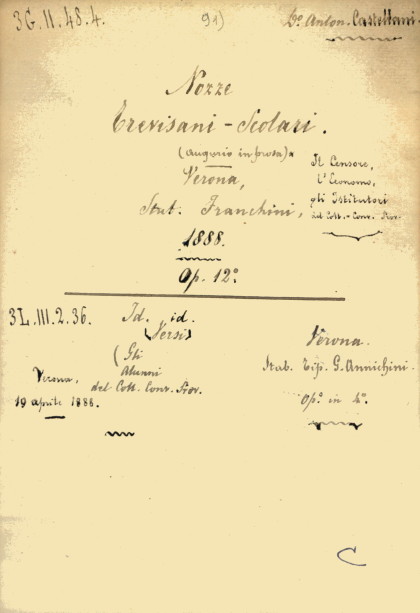 3G.II.48.4.
91)
Do Anton. Castellani.
Nozze
Trevisani - Scolari.
(augurio in prosa)
Verona,
Stab. Franchini,
1888.
Op. 12º
Il Censore,
l'Economo,
gli Istitutori
del Coll.-Conv. Prov.
3L.III.2.36.
Id. id.
(Versi)
(Gli
Alunni
del Coll. Conv. Prov.
Verona,
19 aprile 1888.
Verona.
Stab. Tip. G. Annichini.
Opº in 4º.
C